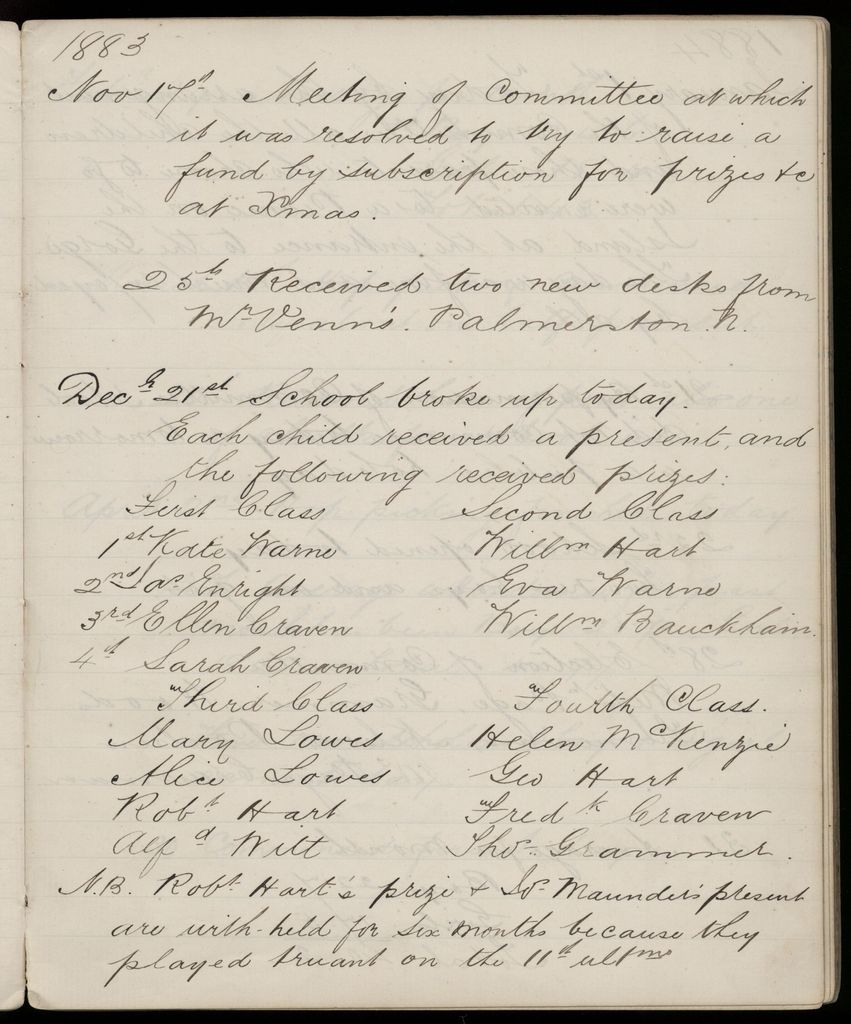 1883
Nov 17th Meeting of Committee at which
it was resolved to try to raise a
fund by subscription for prizes &c
at Xmas.
25th Received two new desks from
Mr Venn's. Palmerston N.
Decr 21st School broke up today.
Each child received a present, and
the following received prizes:
First Class Second Class
1st Kate Warne Willm Hart
2nd do Enright Eva Warne
3rd Ellen Craven Willm Bauckham.
4th Sarah Craven
Third Class Fourth Class.
Mary Lowes Helen McKenzie
Alice Lowes Geo Hart
Robt Hart Fredk Craven
Alfd Witt Thos Grammer.
N.B. Robt Hart's prize & Maunder's present
are with-held for six months because they
played truant on the 11th ultmo